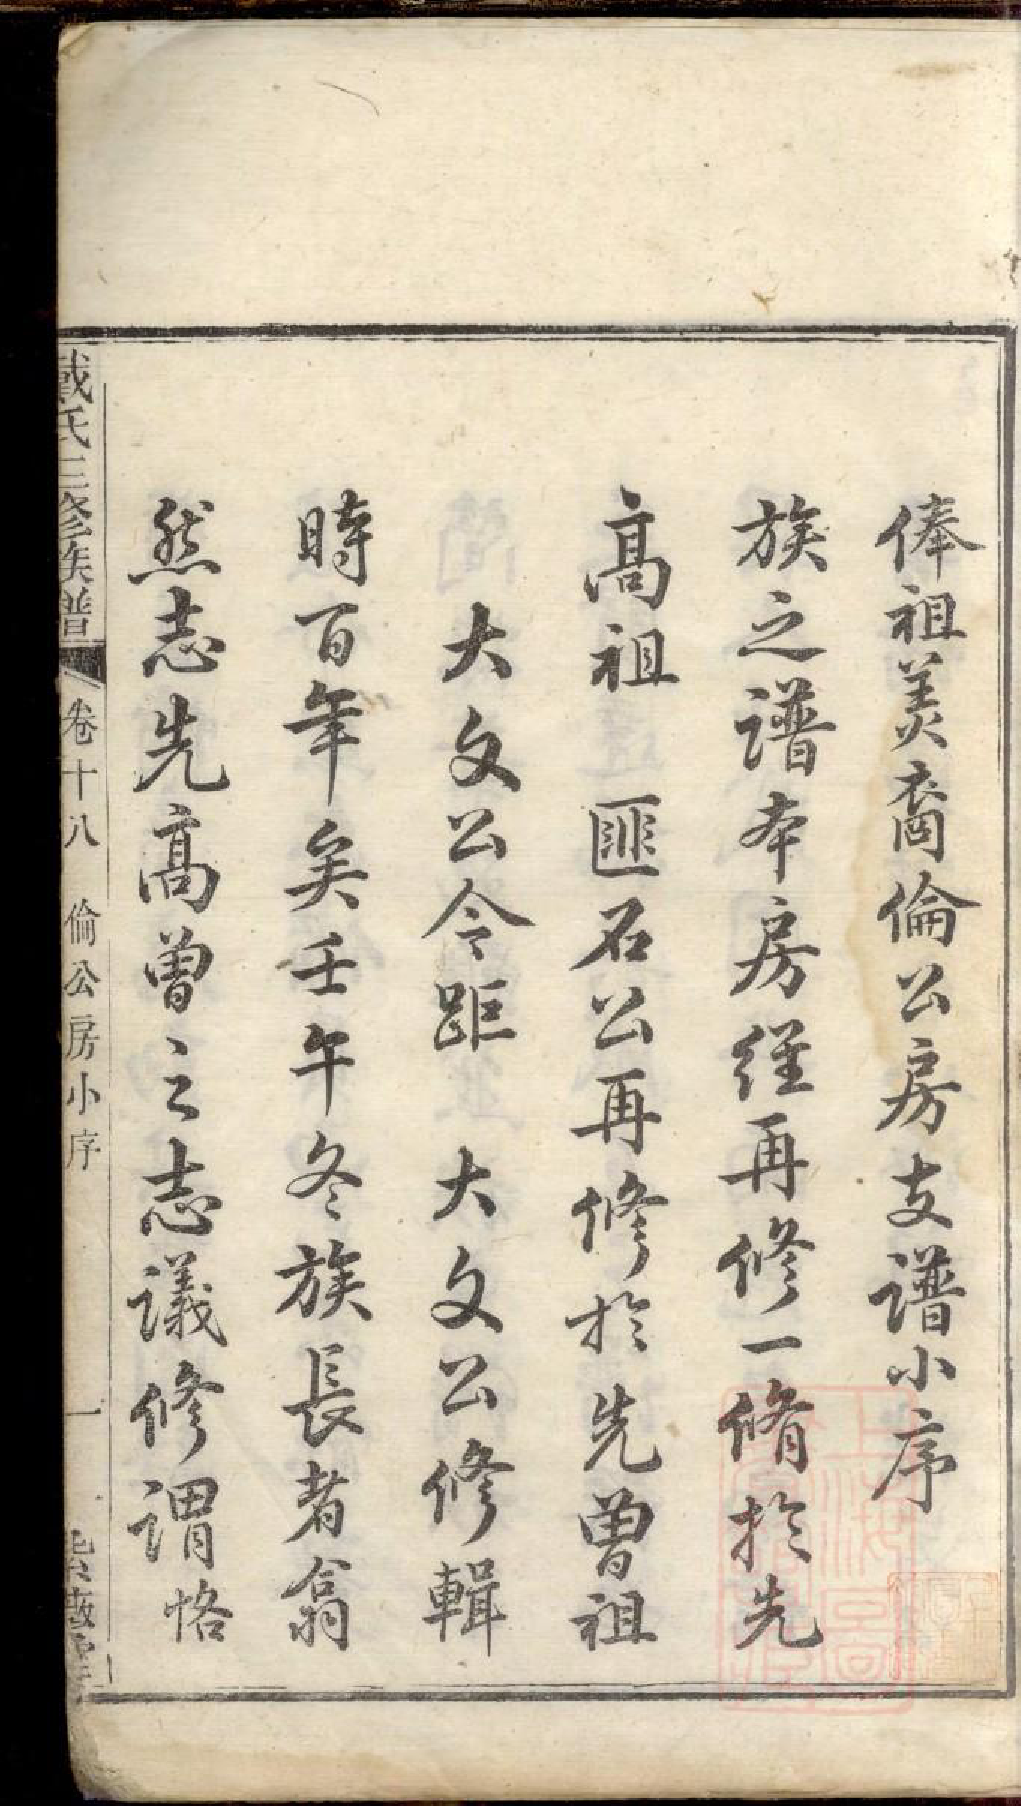 俸祖美裔倫公房支譜小序
族之譜本房經再修一脩於先
高祖 匪石公再修於先曾祖
大文公今距 大文公修輯
時百年矣壬午冬族長者翕
然志先高曾之志議修謂恪
戴氏三修族譜 卷十八 倫公房小序 一